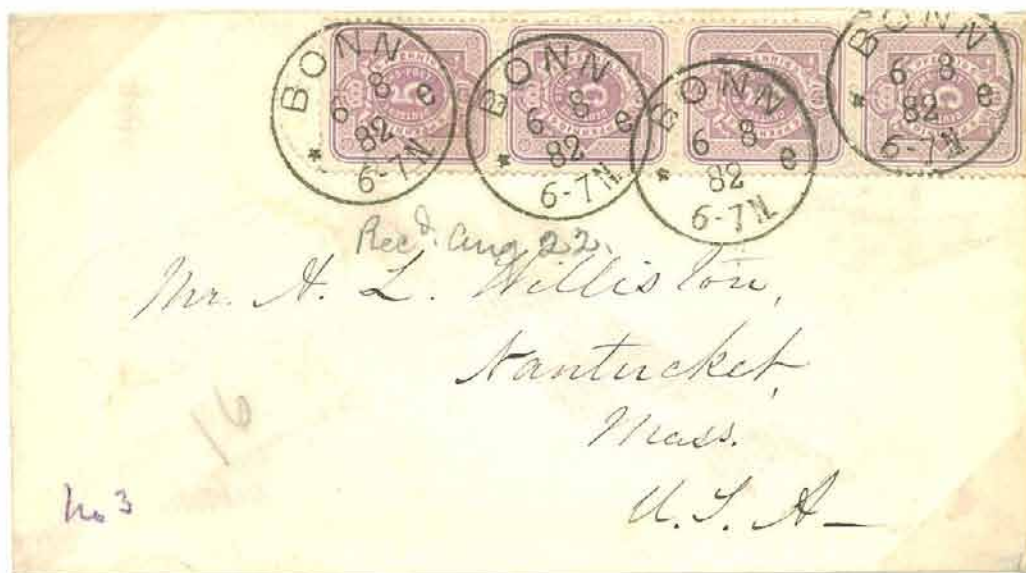 BONN
6 8 e
82
* 6-7N
BONN
6 8 e
82
* 6-7N
BONN
6 8 e
82
* 6-7N
BONN
6 8
82
* 6-7N
5
Rec'd. Aug 22.
Mr. A. L. Williston,
Nantucket,
Mass.
U. S. A—
16
No 3